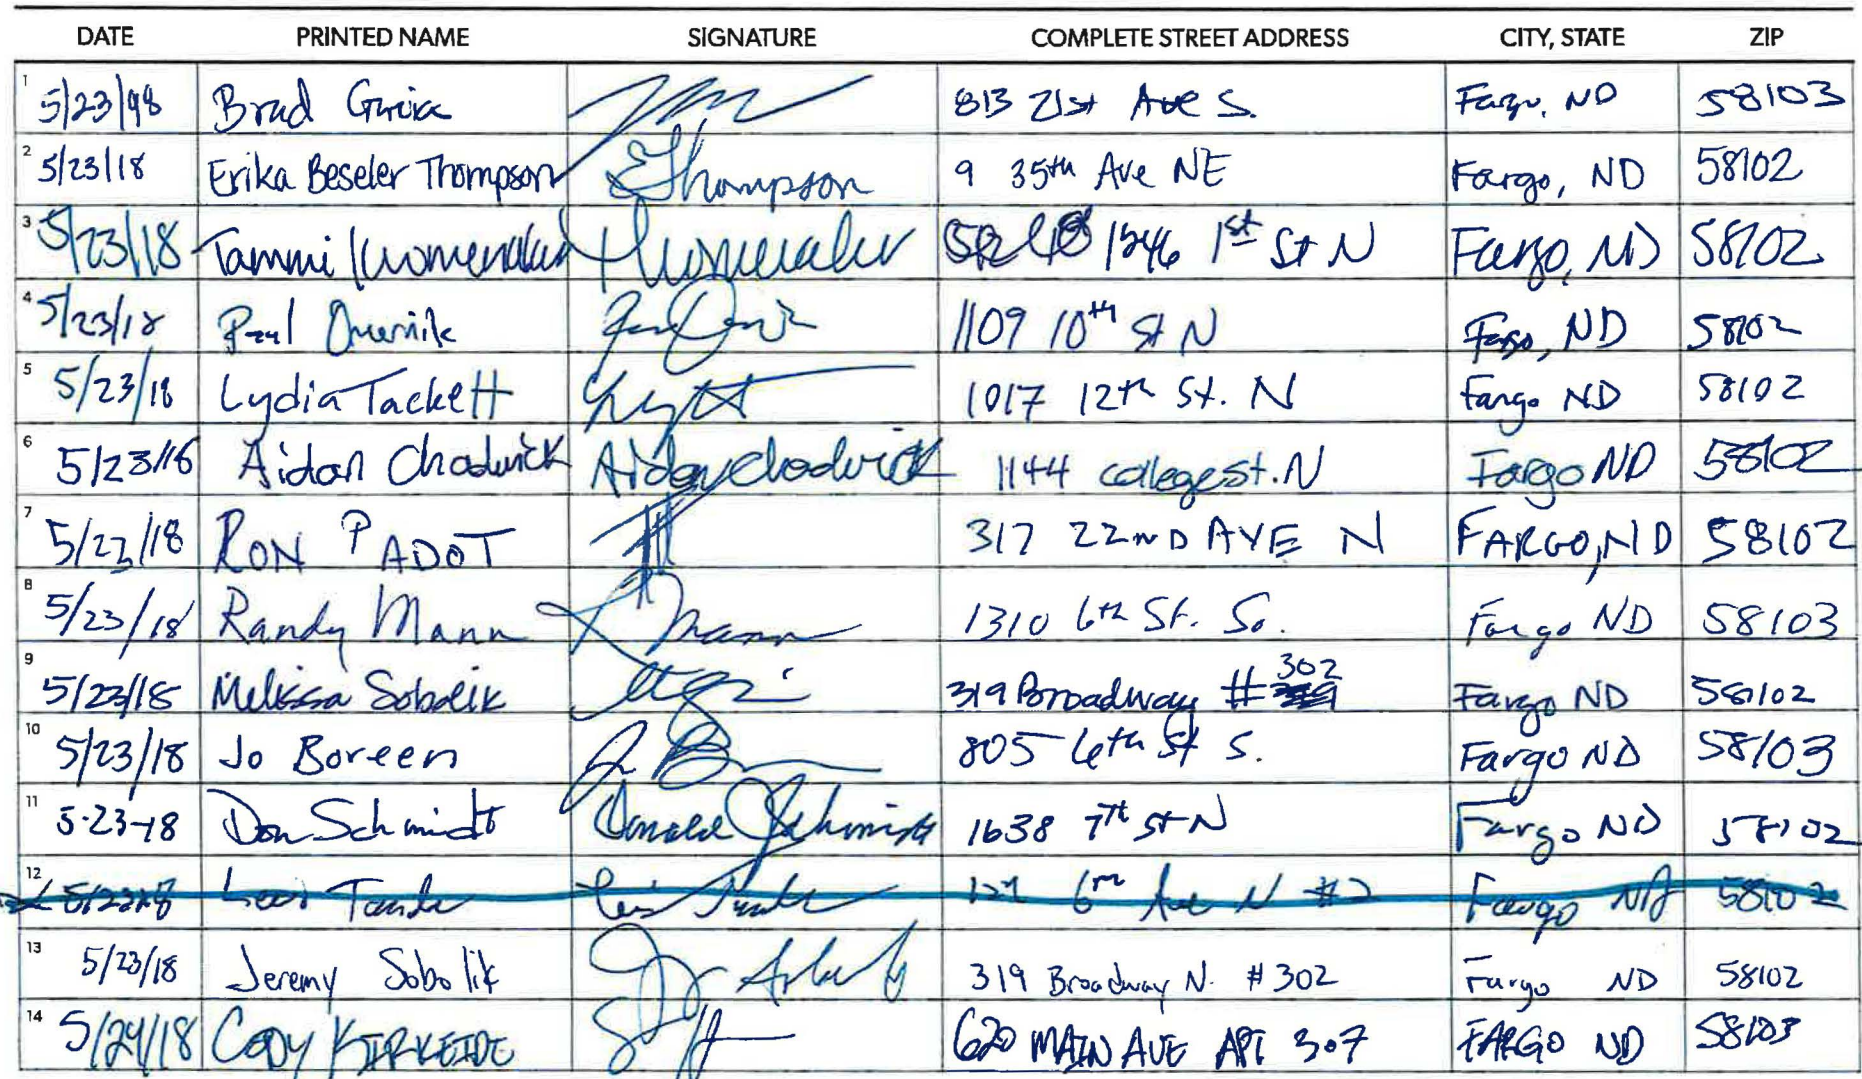 DATE PRINTED NAME SIGNATURE COMPLETE STREET ADDRESS CITY, STATE ZIP
1 5/23/98 Brad 813 21st Ave S. Fargo, ND 58103
2 5/23/18 Erika Beseler Thompson EThompson 9 35th Ave NE Fargo, ND 58102
3 5/23/18 Tammi 1246 1st St N Fargo, ND 58102
4 5/23/18 Paul 1109 10th St N Fargo, ND 58102
5 5/23/18 Lydia Tackett 1017 12th St. N Fargo ND 58102
6 5/23/18 Aidan Chadwick Aidan Chadwick 1144 college st. N Fargo ND 58102
7 5/23/18 RON PADOT 317 22ND AVE N FARGO, ND 58102
8 5/23/18 Randy Mann Mann 1310 6th St. So. Fargo ND 58103
9 5/23/18 Melissa Sobolik 319 Broadway #302 Fargo ND 58102
10 5/23/18 Jo Boreen 805 6th St S. Fargo ND 58103
11 5-23-18 Don Schmidt Donald Schmidt 1638 7th St N Fargo ND 58102
12 5/23/18 6th Ave N #2 Fargo ND 58102
13 5/23/18 Jeremy Sobolik 319 Broadway N. #302 Fargo ND 58102
14 5/24/18 CODY KIRKEIDE 620 MAIN AVE APT 307 FARGO ND 58103